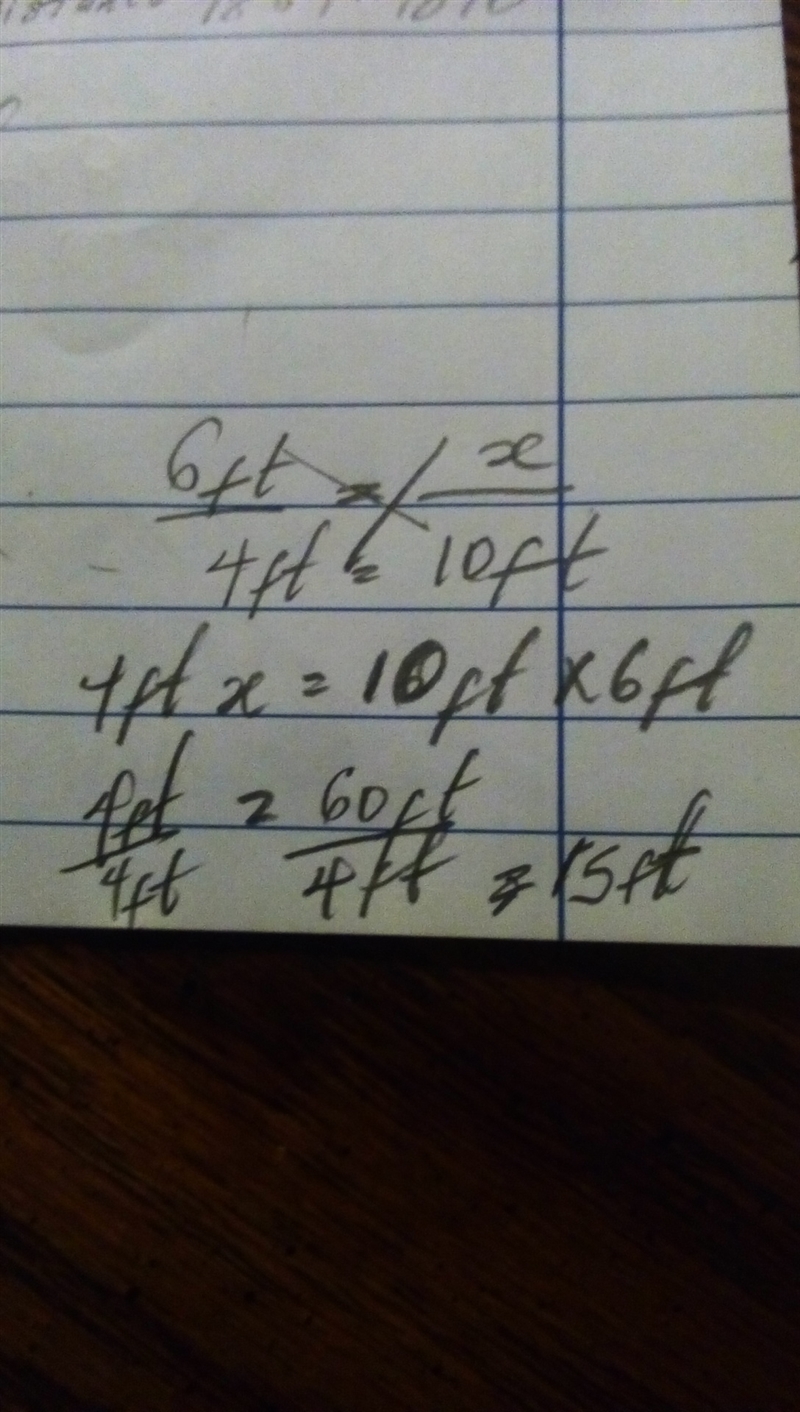 6ft = x
4ft = 10ft
4ft x = 10ft x 6ft
4ft = 60ft
4ft 4ft = 15ft